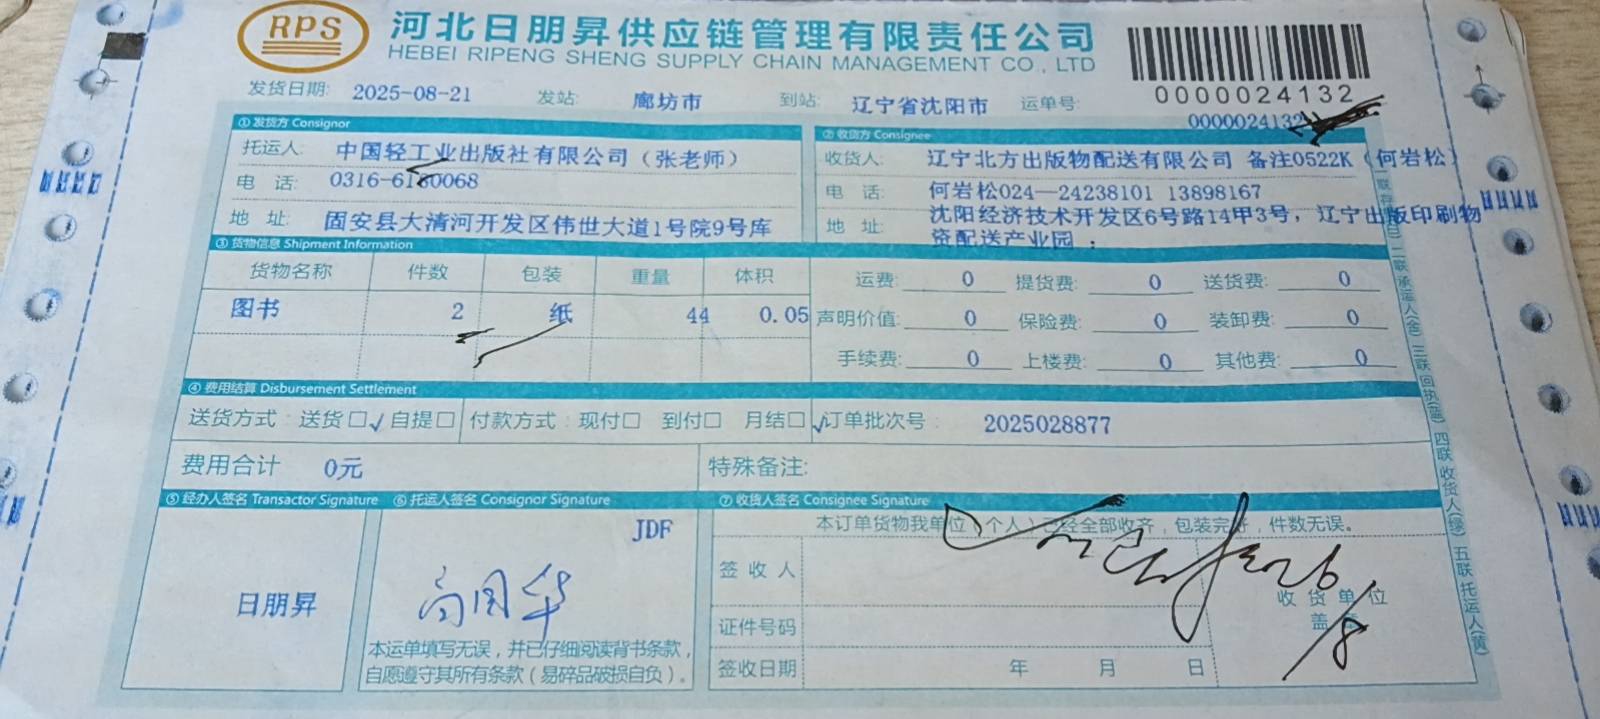 RPS
河北日朋昇供应链管理有限责任公司
HEBEI RIPENG SHENG SUPPLY CHAIN MANAGEMENT CO., LTD
0000024132
发货日期: 2025-08-21 发站: 廊坊市 到站: 辽宁省沈阳市 运单号: 0000024132
① 发货方 Consignor
托运人: 中国轻工业出版社有限公司（张老师）
电 话: 0316-6180068
地 址: 固安县大清河开发区伟世大道1号院9号库
② 收货方 Consignee
收货人: 辽宁北方出版物配送有限公司 备注0522K（何岩松）
电 话: 何岩松024—24238101 13898167
地 址: 沈阳经济技术开发区6号路14甲3号，辽宁出版印刷物
资配送产业园；
③ 货物信息 Shipment Information
货物名称 件数 包装 重量 体积
图书 2 纸 44 0.05
运费: 0 提货费: 0 送货费: 0
声明价值: 0 保险费: 0 装卸费: 0
手续费: 0 上楼费: 0 其他费: 0
④ 费用结算 Disbursement Settlement
送货方式: 送货□✓自提□ 付款方式: 现付□ 到付□ 月结□✓ 订单批次号: 2025028877
费用合计 0元 特殊备注:
⑤ 经办人签名 Transactor Signature
日朋昇
⑥ 托运人签名 Consignor Signature
JDF
本运单填写无误，并已仔细阅读背书条款，
自愿遵守其所有条款（易碎品破损自负）。
⑦ 收货人签名 Consignee Signature
本订单货物我单位（个人）已经全部收齐，包装完好，件数无误。
签 收 人
证件号码
签收日期 年 月 日
收 货 单 位
盖
26/8
二联 承运人(金) 三联 回执(蓝) 四联 收货人(绿) 五联 托运人(黄)